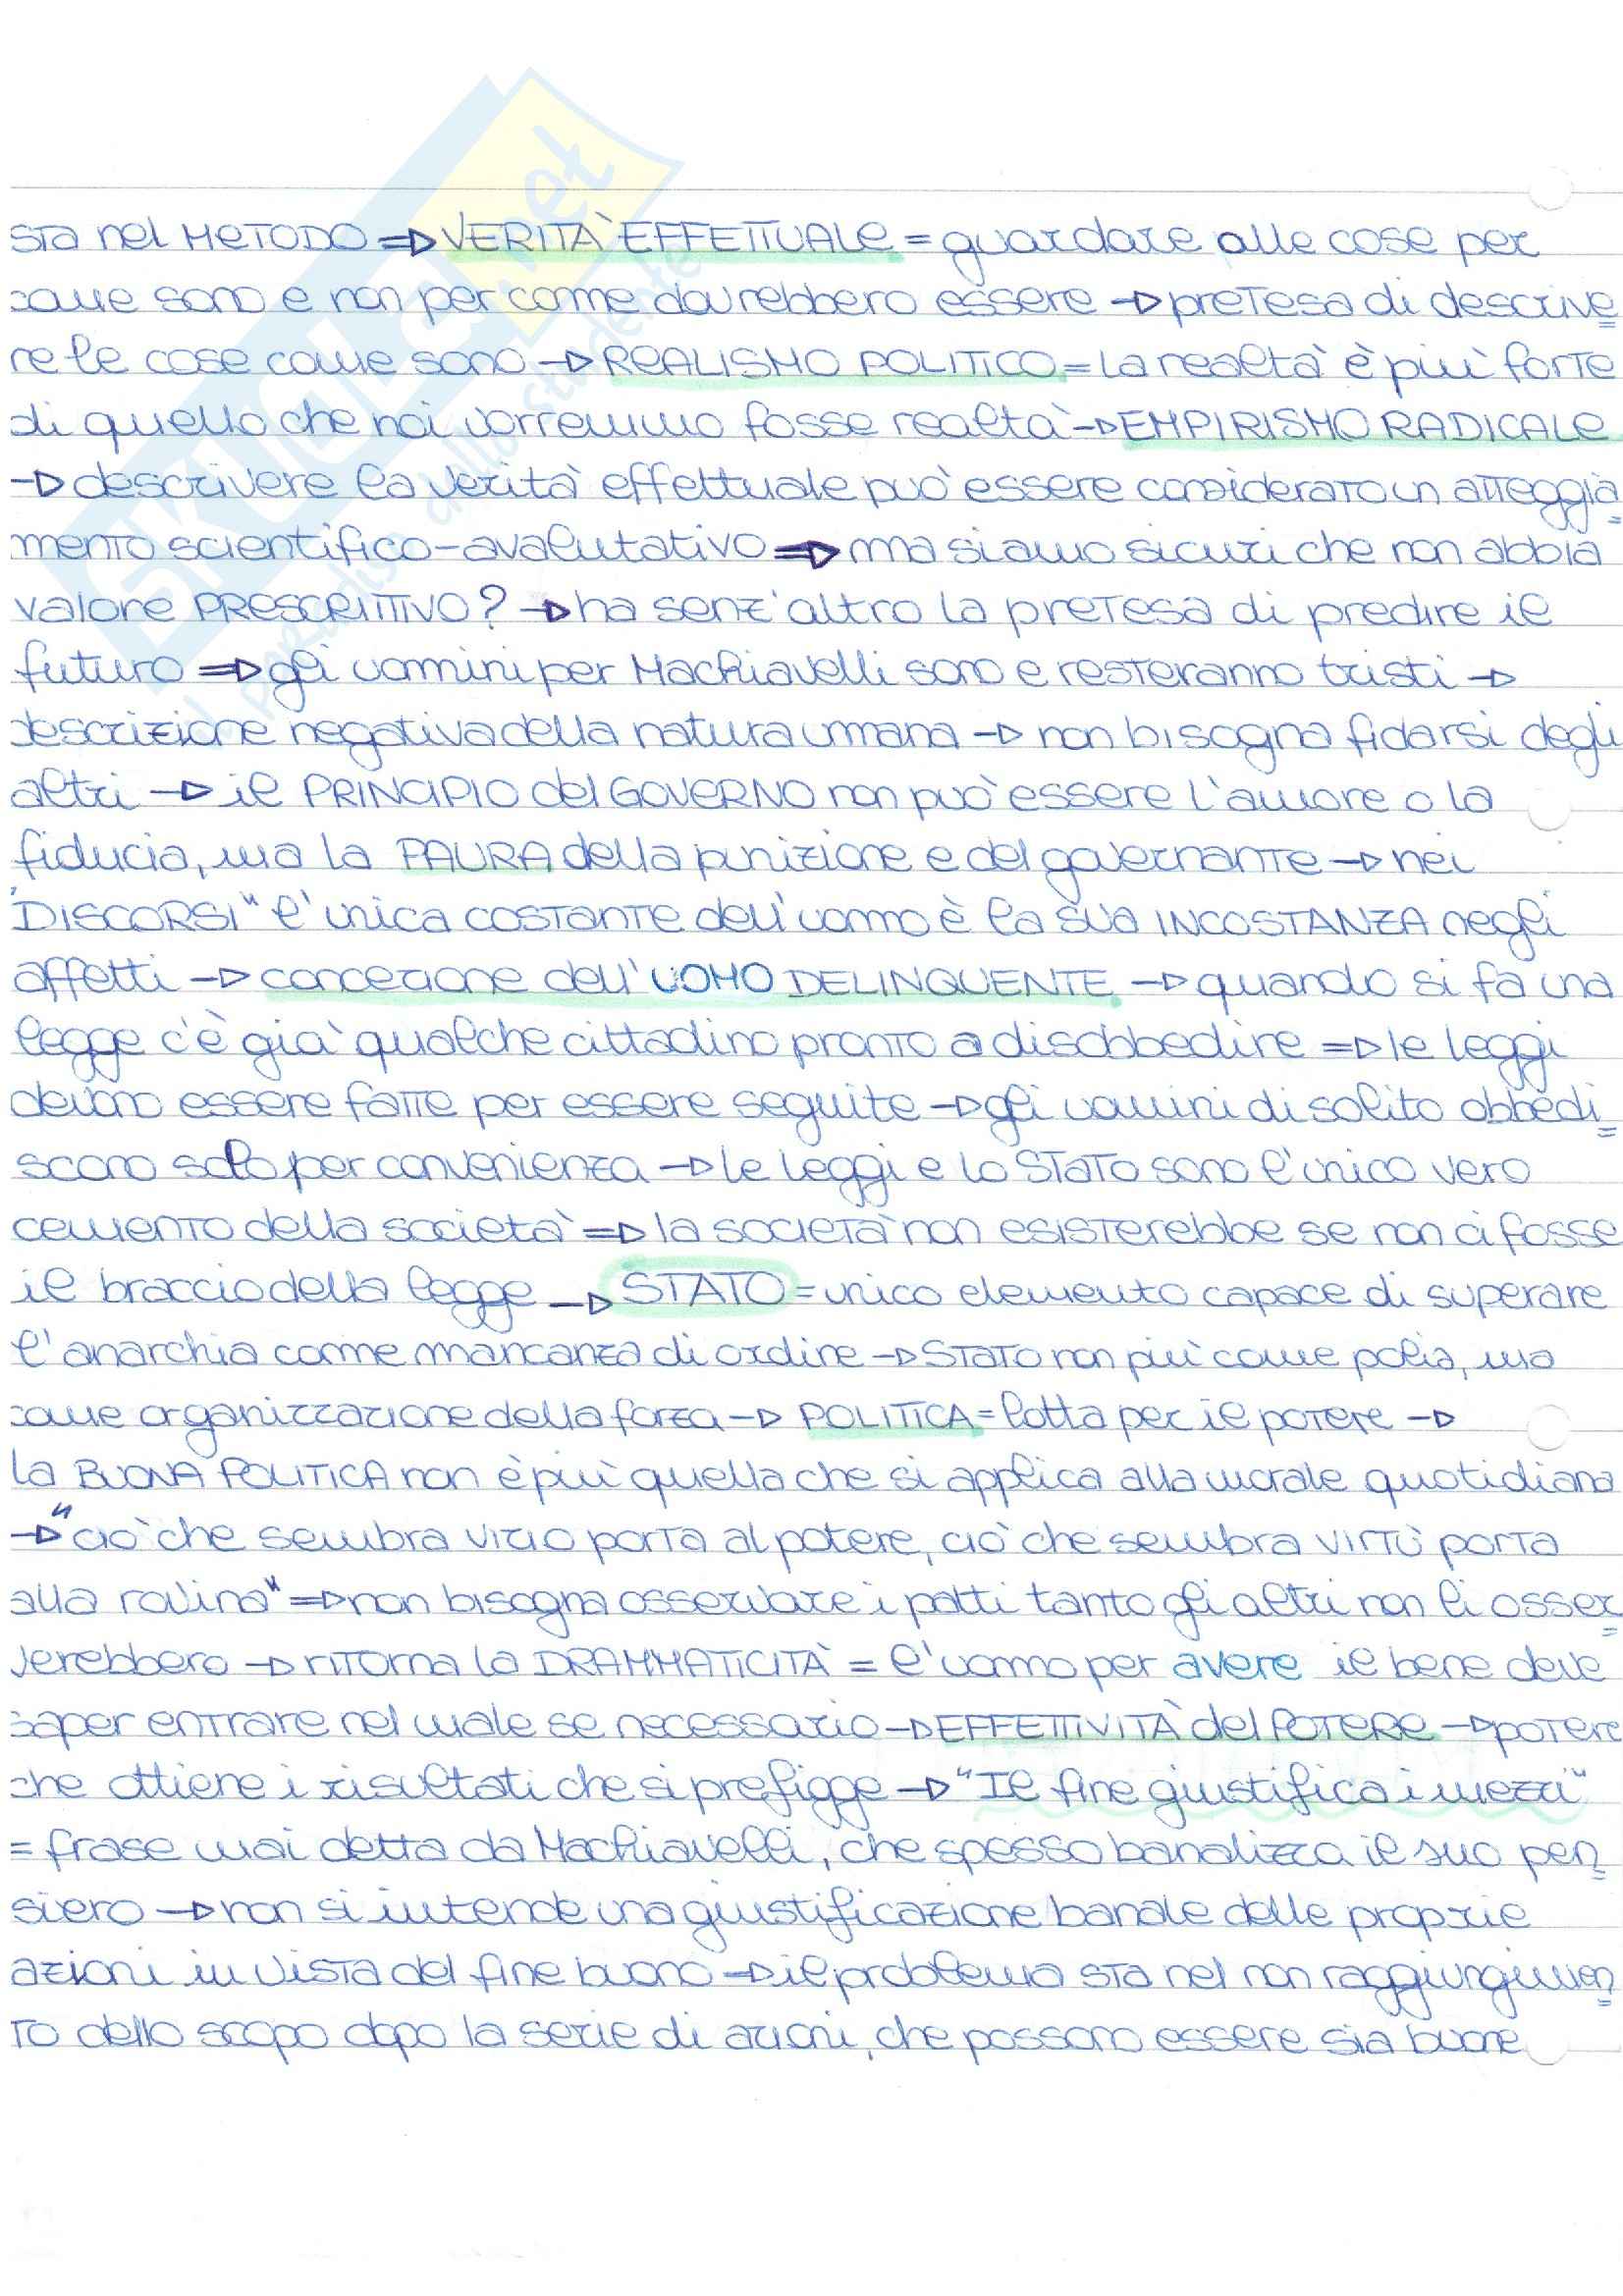 sta nel METODO => VERITÀ EFFETTUALE = guardare alle cose per
come sono e non per come dovrebbero essere -> pretesa di descrive=
re le cose come sono -> REALISMO POLITICO = la realtà è più forte
di quello che noi vorremmo fosse realtà -> EMPIRISMO RADICALE
-> descrivere la verità effettuale può essere considerato un atteggia=
mento scientifico-avalutativo => ma siamo sicuri che non abbia
valore PRESCRITTIVO? -> ha senz'altro la pretesa di predire il
futuro => gli uomini per Machiavelli sono e resteranno tristi ->
descrizione negativa della natura umana -> non bisogna fidarsi degli
altri -> il PRINCIPIO del GOVERNO non può essere l'amore o la
fiducia, ma la PAURA della punizione e del governante -> nei
"DISCORSI" l'unica costante dell'uomo è la sua INCOSTANZA negli
affetti -> concezione dell'UOMO DELINQUENTE -> quando si fa una
legge c'è già qualche cittadino pronto a disobbedire => le leggi
devono essere fatte per essere seguite -> gli uomini di solito obbedi=
scono solo per convenienza -> le leggi e lo Stato sono l'unico vero
cemento della società => la società non esisterebbe se non ci fosse
il braccio della legge -> STATO = unico elemento capace di superare
l'anarchia come mancanza di ordine -> Stato non più come polis, ma
come organizzazione della forza -> POLITICA = lotta per il potere ->
la BUONA POLITICA non è più quella che si applica alla morale quotidiana
-> "ciò che sembra vizio porta al potere, ciò che sembra virtù porta
alla rovina" => non bisogna osservare i patti tanto gli altri non li osser=
verebbero -> ritorna la DRAMMATICITÀ = l'uomo per avere il bene deve
saper entrare nel male se necessario -> EFFETTIVITÀ del POTERE -> potere
che ottiene i risultati che si prefigge -> "Il fine giustifica i mezzi"
= frase mai detta da Machiavelli, che spesso banalizza il suo pen=
siero -> non si intende una giustificazione banale delle proprie
azioni in vista del fine buono -> il problema sta nel non raggiungimen=
to dello scopo dopo la serie di azioni, che possono essere sia buone